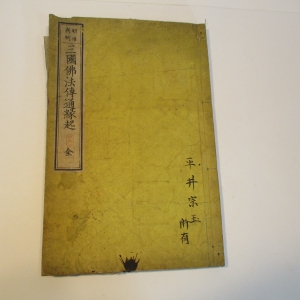 三國佛法傳通縁起 全
平井宗玉
所有